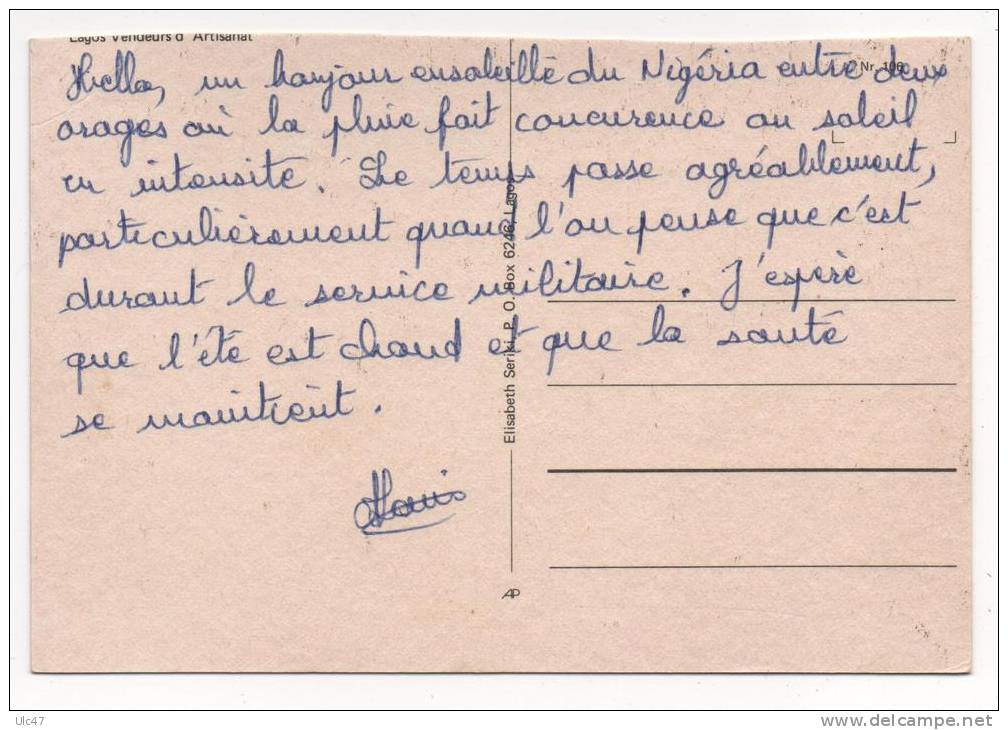 Lagos Vendeurs d'Artisanat
Nr. 106
Hello, un bonjour ensoleillé du Nigéria entre deux
orages où la pluie fait concurence au soleil
en intensité. Le temps passe agréablement,
particulièrement quand l'on pense que c'est
durant le service militaire. J'espère
que l'été est chaud et que la santé
se maintient.
Elisabeth Seriki P. O. Box 6246, Lagos
AP
Ulc47
www.delcampe.net